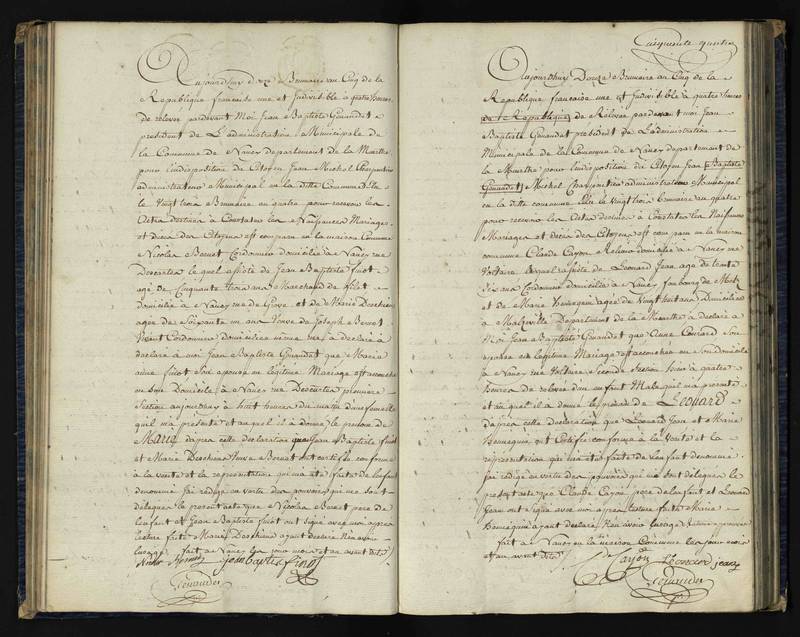 Aujourd'huy douze Brumaire an Cinq de la
Republique francoise une et Indivisible à quatre heures
de relevée pardevant Moi Jean Baptiste
president de L'administration Municipale de
la Commune de Nancy departement de la Meurthe
pour l'indisposition du Citoyen Jean Michel Charpentier
administrateur Municipal en la ditte Commune Elu
le Vingt trois Brumaire an quatre pour recevoir les
Actes destinés à Constater les Naissances Mariages
et décès des Citoyens est comparu en la maison Commune
Nicolas Cordonnier domicilié à Nancy rue
Descartes le quel assisté de Jean Baptiste finot
agé de Cinquante trois ans Marchand de
domicilié à Nancy rue de Greve et de Marie
agée de Soixante un ans Veuve de Joseph
Vivant Cordonnier domiciliée à declaré à
declaré à moi Jean Baptiste que Marie
anne finot Son epouse en legitime Mariage est accouchée
en Son Domicile à Nancy rue Descartes premiere
Section aujourd'huy à huit heures du matin d'une femelle
qu'il m'a présenté et au quel il a donné le prenom de
Marie d'apres cette declaration que Jean Baptiste finot
et Marie Veuve ont certifié conforme
à la verité et la représentation qui m'a été faite de l'enfant
denommé J'ai redigé en vertu des pouvoirs qui me sont
délégués le present acte que Nicolas pere de
l'enfant et Jean Baptiste finot ont signé avec moi apres
lecture faite Marie ayant declaré Ne savoir
fait à Nancy les jour mois et an avant dits
Jean Baptiste finot
Cinquante quatre
Aujourd'huy Douze Brumaire an Cinq de la
Republique francoise une et Indivisible à quatre heures
de la Republique de Relevée pardevant moi Jean
Baptiste president de L'administration
Municipale de la Commune de Nancy departement de
la Meurthe pour l'indisposition du Citoyen Jean Baptiste
Michel Charpentier administrateur Municipal
en la ditte commune Elu le vingt trois brumaire an quatre
pour recevoir les Actes destinés à Constater les Naissances
Mariages et décès des Citoyens est comparu en la maison
commune Claude Cayon Relieur domicilié à Nancy rue
Voltaire lequel assisté de Leonard Jean agé de trente
six ans Cordonnier domicilié à Nancy faubourg de Metz
et de Marie Hennequin agée de Vingt huit ans Domiciliée
à Malzeville Departement de la Meurthe à declaré à
Moi Jean Baptiste que Anne Son
epouse en legitime Mariage est accouchée en Son domicile
à Nancy rue Voltaire Seconde Section hier à quatre
heures de relevée d'un enfant Male qu'il m'a presenté
et au quel il a donné le prenom de Leonard
d'apres cette declaration que Leonard Jean et Marie
Hennequin ont Certifié conforme à la Verité et la
représentation qui m'a été faite de l'enfant denommé
j'ai rédigé en vertu des pouvoirs qui me sont delegués le
present acte que Claude Cayon pere de l'enfant et Leonard
Jean ont signé avec moi apres lecture faite Marie
Hennequin ayant declaré Ne savoir
fait à Nancy en la maison Commune les jour mois
et an avant dits
Cayon Leonard jean